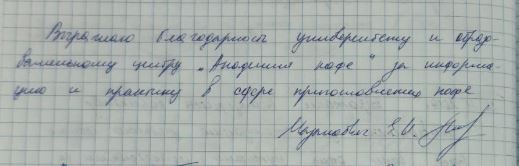 Выражаю благодарность университету и образо-
вательному центру „Академия кофе" за информа-
цию и практику в сфере приготовления кофе